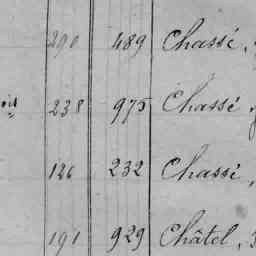 290 489 Chassé,
238 975 Chassé
126 232 Chassé,
191 929 Châtel,